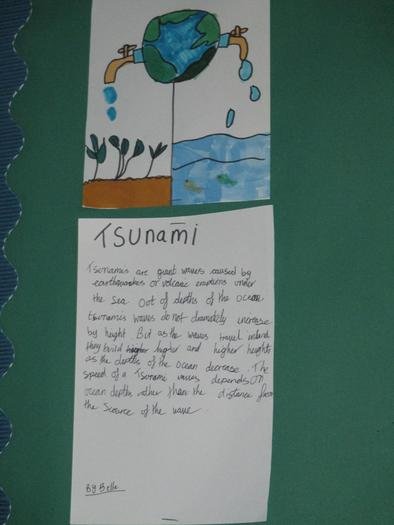 Tsunami
Tsunamis are giant waves caused by
earthquakes or volcanic eruptions under
the sea Out of depths of the ocean
tsunamis waves do not dramatically increase
by height. But as the waves travel inland
they build higher and higher heights
as the depths of the ocean decrease. The
speed of a Tsunami waves depends on
ocean depths rather than the distance from
the source of the wave
By Belle